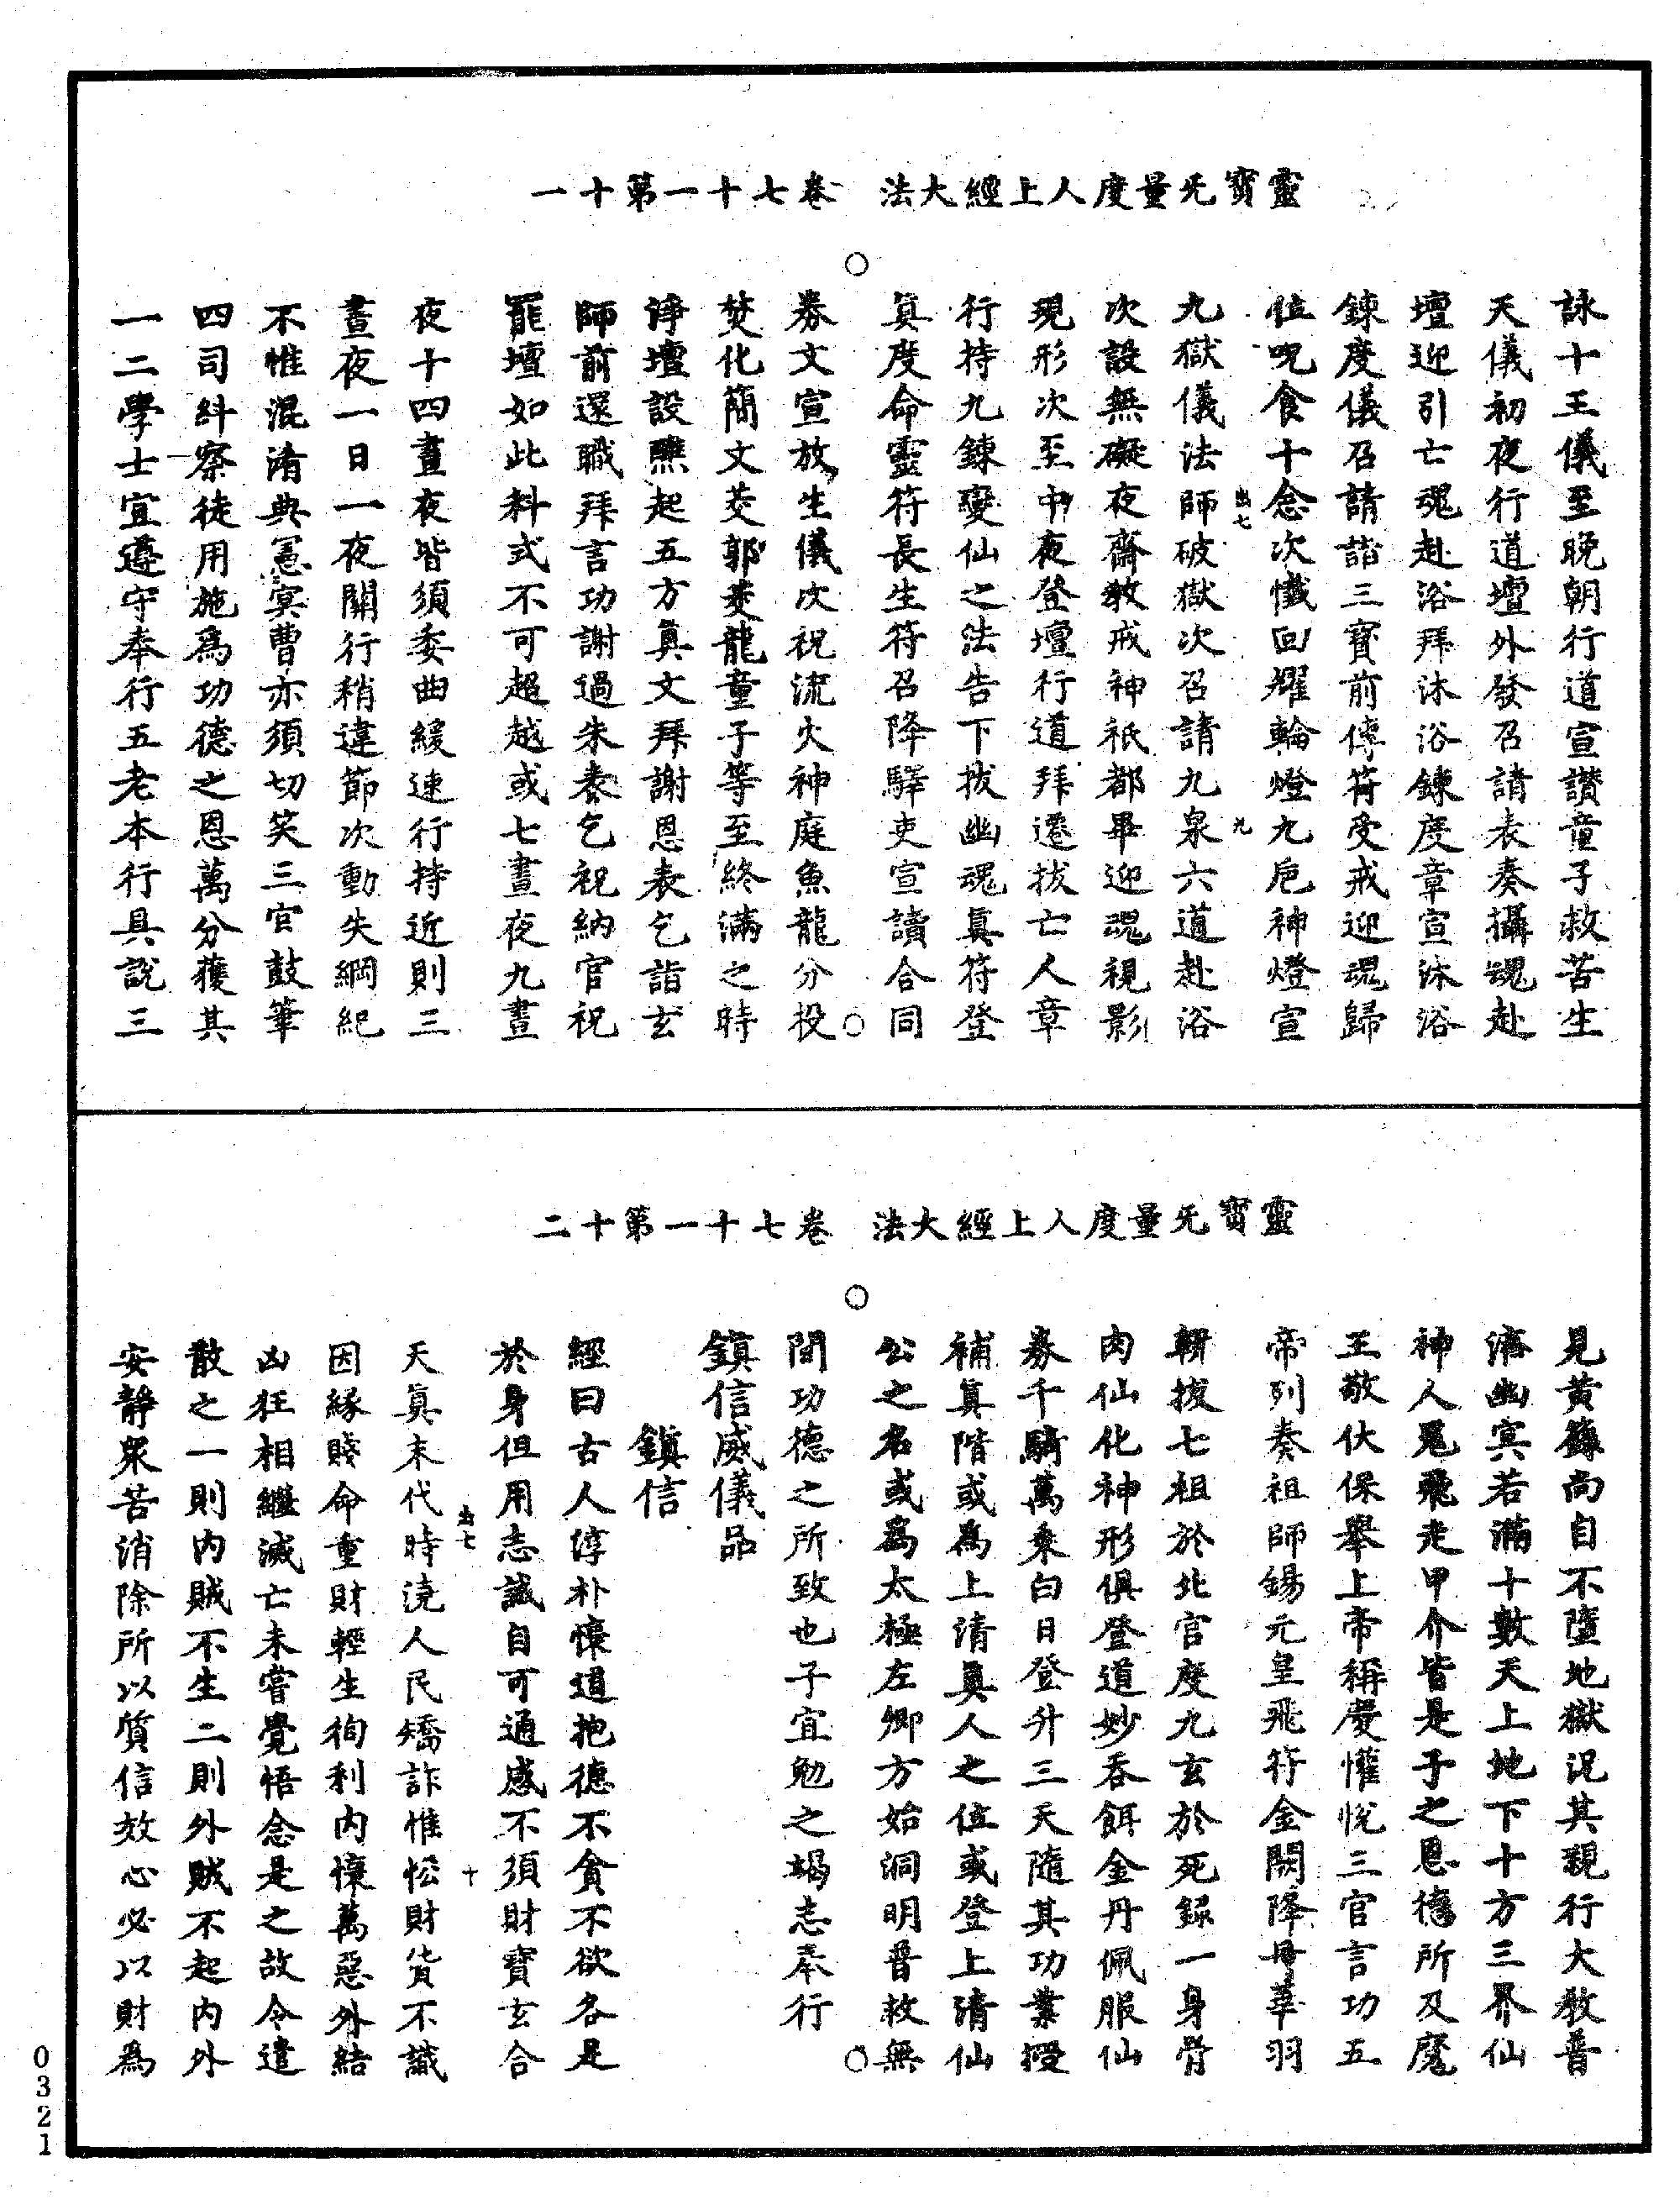 靈寶旡量度人上經大法　卷七十一第十一
詠十王儀至晚朝行道宣讚童子救苦生
天儀初夜行道壇外發召請表奏攝魂赴
壇迎引亡魂赴浴拜沐浴鍊度章宣沐浴
鍊度儀召請詣三寶前傳符受戒迎魂歸
位呪食十念次懺回耀輪燈九巵神燈宣
出七　九
九獄儀法師破獄次召請九泉六道赴浴
次設無礙夜齋教戒神祇都畢迎魂視影
現形次至中夜登壇行道拜遷拔亡人章
行持九鍊變仙之法告下拔幽魂真符登
真度命靈符長生符召降驛吏宣讀合同
券文宣放生儀次祝流火神庭魚龍分投
焚化簡文茭郭茭龍童子等至終滿之時
諍壇設醮起五方真文拜謝恩表乞詣玄
師前還職拜言功謝過朱表乞祝納官祝
罷壇如此科式不可超越或七晝夜九晝
夜十四晝夜皆須委曲緩速行持近則三
晝夜一日一夜關行稍違節次動失綱紀
不惟混淆典憲㝠曹亦須切笑三官鼓筆
四司糾察徒用施爲功德之恩萬分獲其
一二學士宜遵守奉行五老本行具說三
靈寶旡量度人上經大法　卷七十一第十二
見黃籙尚自不墮地獄況其親行大教普
濟幽㝠若滿十數天上地下十方三界仙
神人鬼飛走甲介皆是子之恩德所及魔
王敬伏保舉上帝稱慶懽悅三官言功五
帝列奏祖師錫元皇飛符金闕降丹華羽
輧拔七祖於北官度九玄於死錄一身骨
肉仙化神形俱登道妙吞餌金丹佩服仙
券千騎萬乘白日登升三天隨其功業授
補真階或爲上清真人之位或登上清仙
公之名或爲太極左卿方始洞明普救無
間功德之所致也子宜勉之竭志奉行
鎮信威儀品
鎮信
經曰古人淳朴懷道抱德不貪不欲各是
於身但用志誠自可通感不須財寶玄合
出七　十
天真末代時澆人民矯詐惟怪財貨不識
因緣賤命重財輕生徇利內懷萬惡外結
凶狂相繼滅亡未嘗覺悟念是之故令遣
散之一則內賊不生二則外賊不起內外
安靜衆苦消除所以質信效心必以財爲
0321